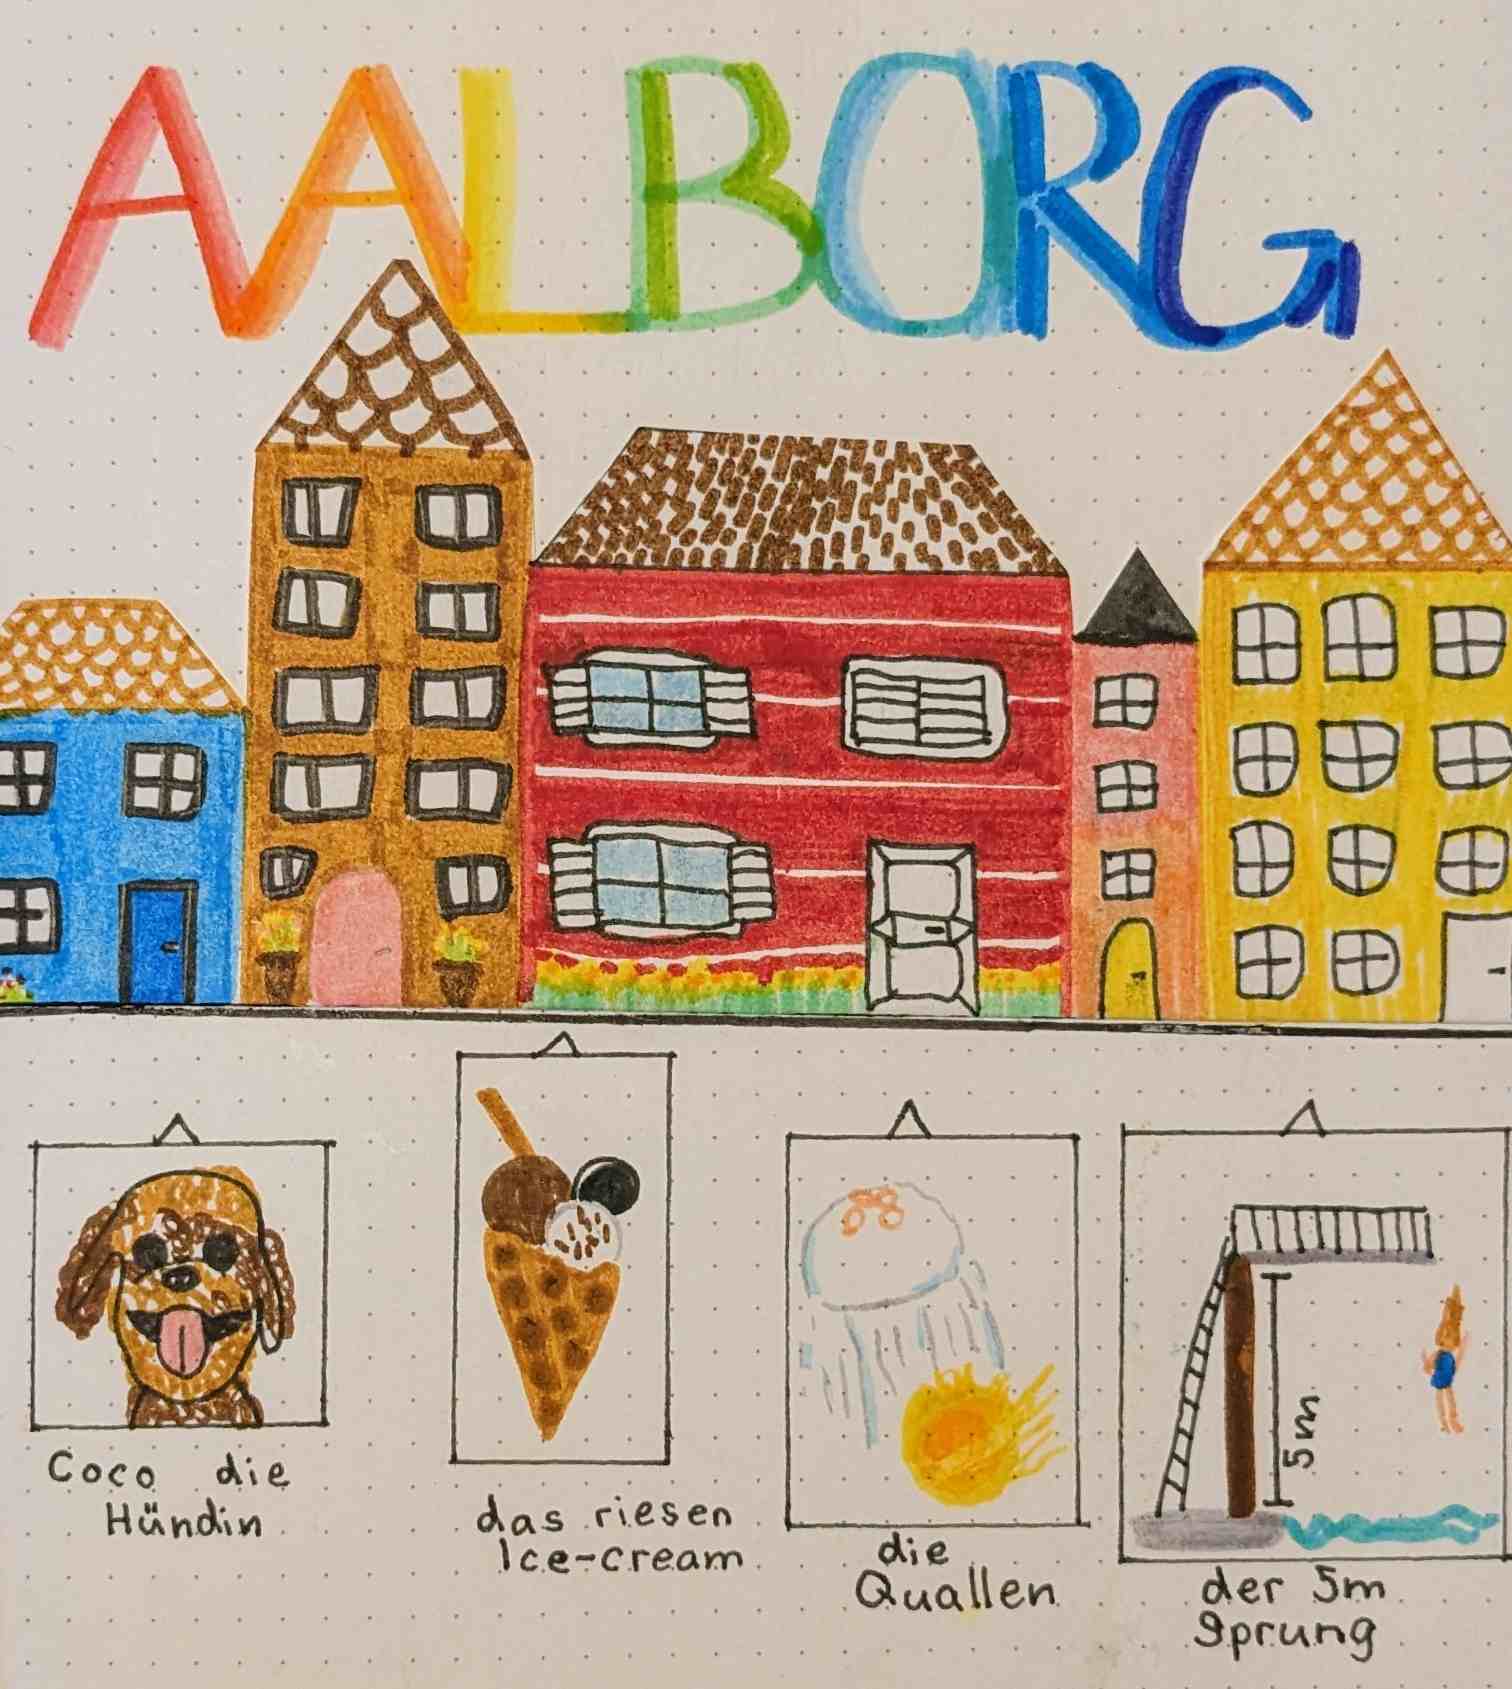 AALBORG
Coco die
Hündin
das riesen
Ice-cream
die
Quallen
5m
der 5m
Sprung